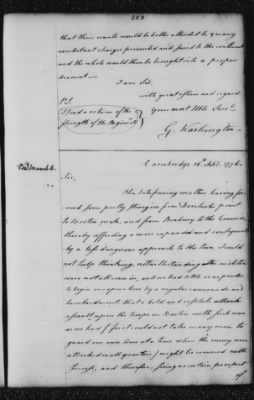 that their wants would be better attended to & many
exorbitant charges prevented and saved to the continent
and the whole would then be brought into a proper
I am Sir,
with great esteem and regard
P.S.
I had a return of the
strength of the Regiments
your most Obt. Serv.
G. Washington
Cambridge 26th 1776.
Sir,
The late freezing weather having for
med some pretty strong ice from Dorchester point
to Boston neck, and from Roxbury to the Common
thereby affording a more expanded and
by a less dangerous approach to the town, I could
not help thinking, notwithstanding the militia
were not all come in, and we had little or no powder
to begin our operations by a regular cannonade and
bombardment, that a bold and resolute attack
upon the troops in Boston with such men
as we had (for it could not take many men to
guard our own lines at a time when the enemy were
attacked in all quarters) might be crowned with
success, and therefore, seeing no certain prospect
of